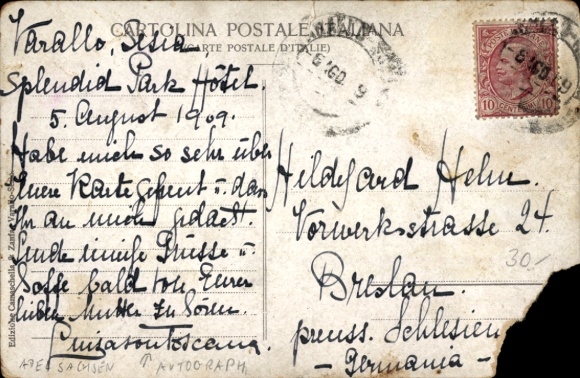 CARTOLINA POSTALE ITALIANA
(CARTE POSTALE D'ITALIE)
Varallo, Sesia,
Splendid Park Hôtel.
5. August 1909.
Habe mich so sehr über
Ihren Karte gefreut u. dass
Ihr an mich gedacht.
Sende innige Grüsse u.
hoffe bald von Eurer
lieben Mutter zu hören.
Luisa von Toscana.
Hildegard Helm.
Vorwerkstrasse 24.
Breslau.
preuss. Schlesien
- Germania -
30.-
POSTE ITALIANE
10 CENT 10
8.09
AUTOGRAPH